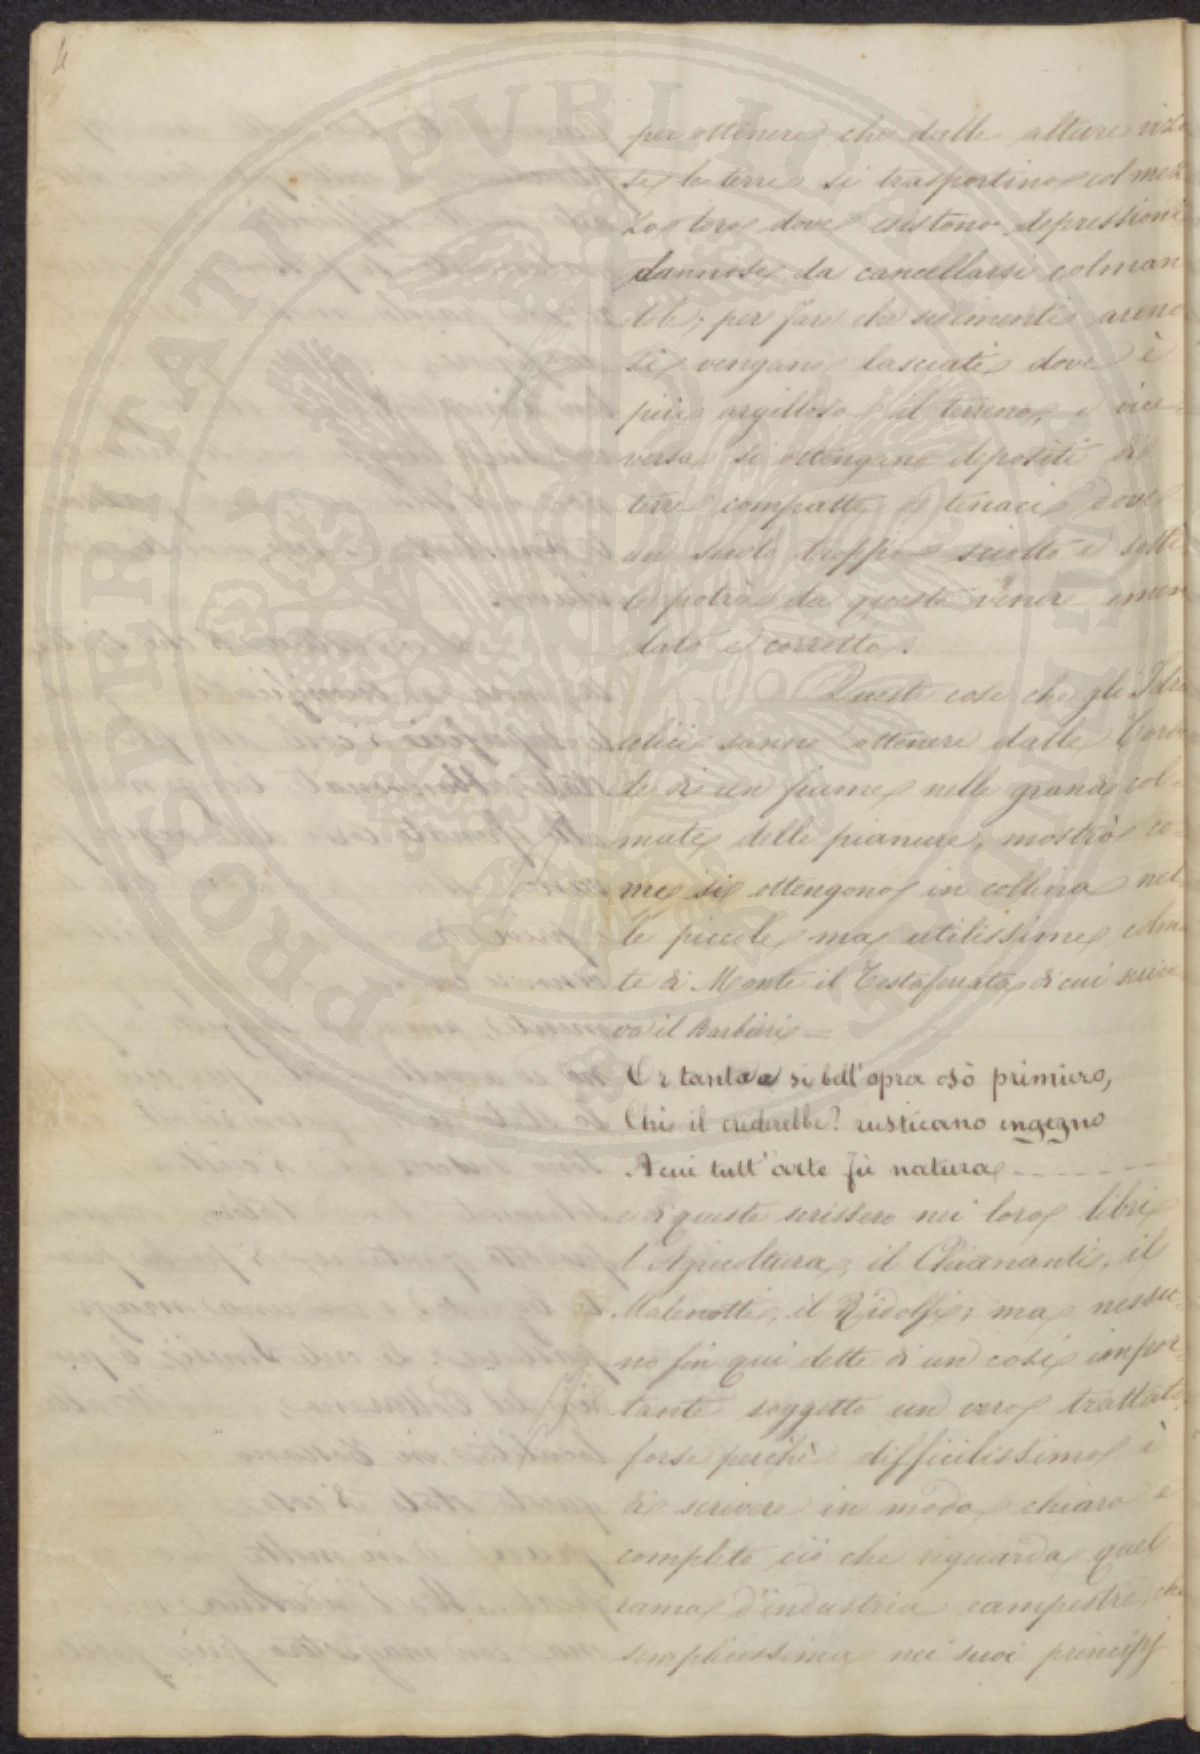 4
per ottenere che dalle alture vizi
se le terre si trasportino col mez
zo loro dove esistono depressioni
dannose da cancellarsi colman
dole; per fare che sedimenti areno
si vengano lasciati dove è
più argilloso il terreno, e vice-
versa si ottengano depositi di
terre compatte e tenaci dove
un suolo troppo sciolto e sotti
le potrà da queste venire emen
dato e corretto.
Queste cose che gli Idra
ulici sanno ottenere dalle Torbi
de di un fiume nelle grandi col-
mate delle pianure, mostrò co-
me si ottengono in collina nel-
le piccole ma utilissime colma
te di Monte il Testaferrata di cui scrive
va il Barbieri =
Or tanta a si bell' opra osò primiero,
Chi il crederebbe? rusticano ingegno
A cui tutt' arte fù natura - - - - - -
e di queste scrissero nei loro libri
d'Agricoltura, il Chiananti, il
Malenotti, il Ridolfi; ma nessu-
no fin qui dette di un così impor-
tante soggetto un vero trattato,
forse perchè difficilissimo è
di scrivere in modo chiaro e
completo ciò che riguarda quel
ramo d'industria campestre, che
semplicissima nei suoi principj
PROSPERITATI PUBLICAE AUGENDAE